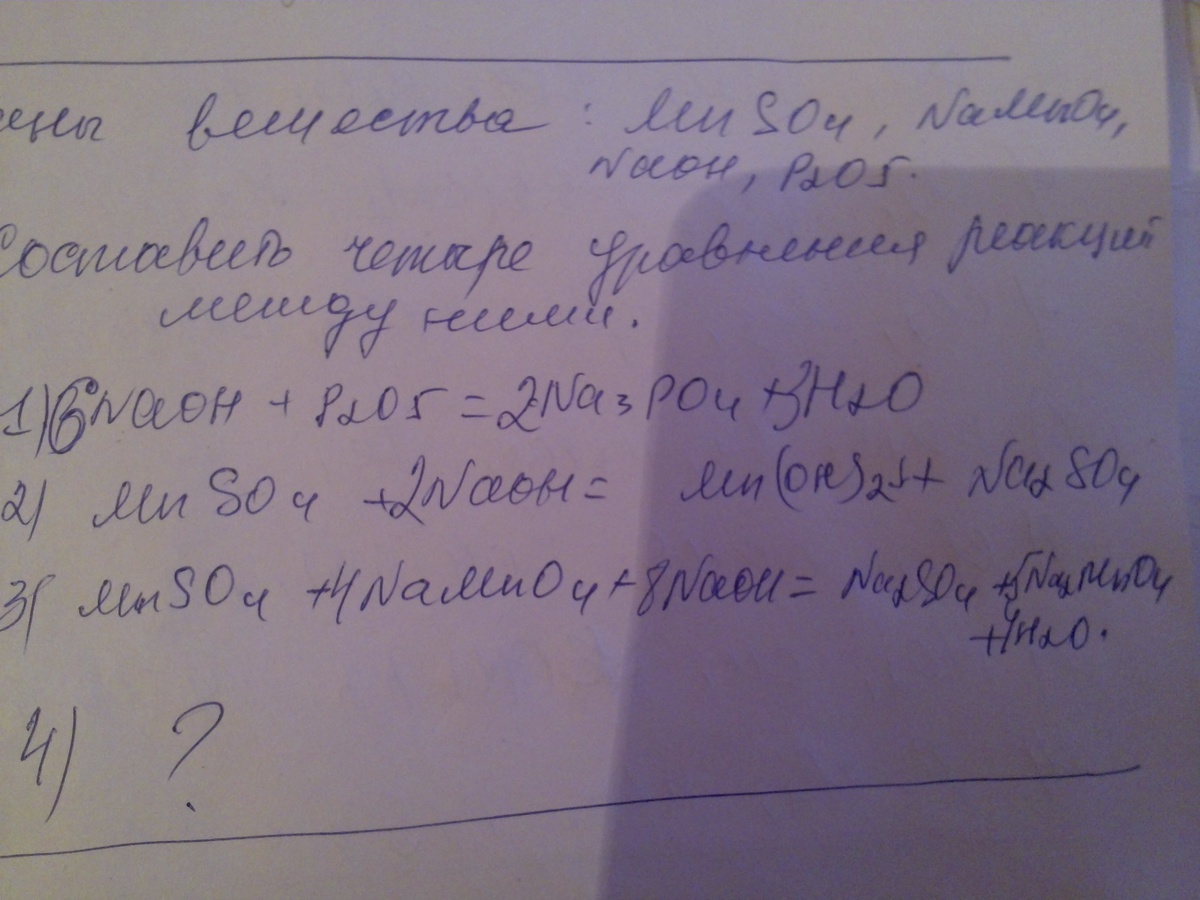 вещества : MnSO4, NaMnO4,
NaOH, P2O5.
Составить четыре уравнения реакций
между ними.
1) 6NaOH + P2O5 = 2Na3PO4 + 3H2O
2) MnSO4 + 2NaOH = Mn(OH)2↓ + Na2SO4
3) MnSO4 + 4NaMnO4 + 8NaOH = Na2SO4 + 5Na2MnO4
+ 4H2O.
4) ?